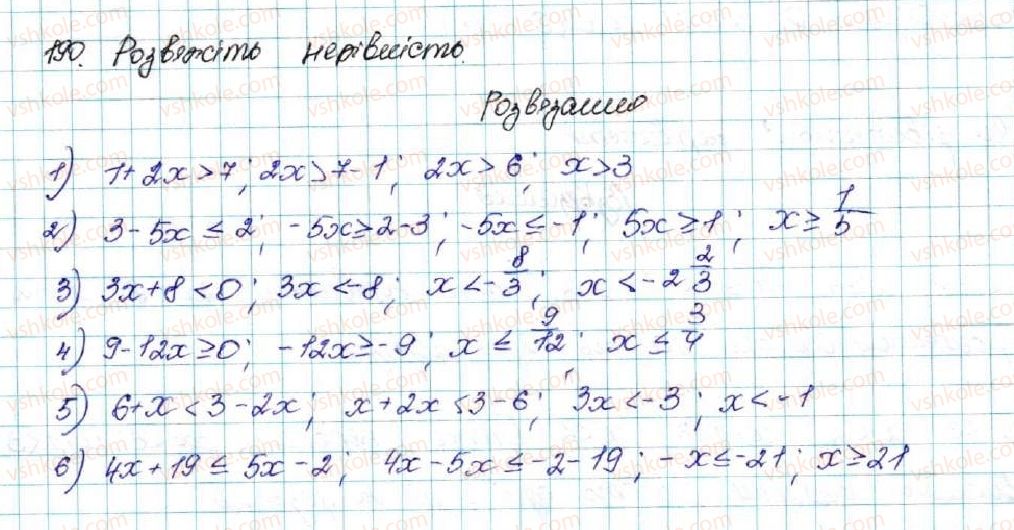 190. Розвяжіть нерівність.
Розвязання
1) 1+2x>7; 2x>7-1; 2x>6; x>3
2) 3-5x≤2; -5x≥2-3; -5x≤-1; 5x≥1; x≥1/5
3) 3x+8<0; 3x<-8; x<-8/3; x<-2 2/3
4) 9-12x≥0; -12x≥-9; x≤9/12; x≤3/4
5) 6+x<3-2x; x+2x<3-6; 3x<-3; x<-1
6) 4x+19≤5x-2; 4x-5x≤-2-19; -x≤-21; x≥21